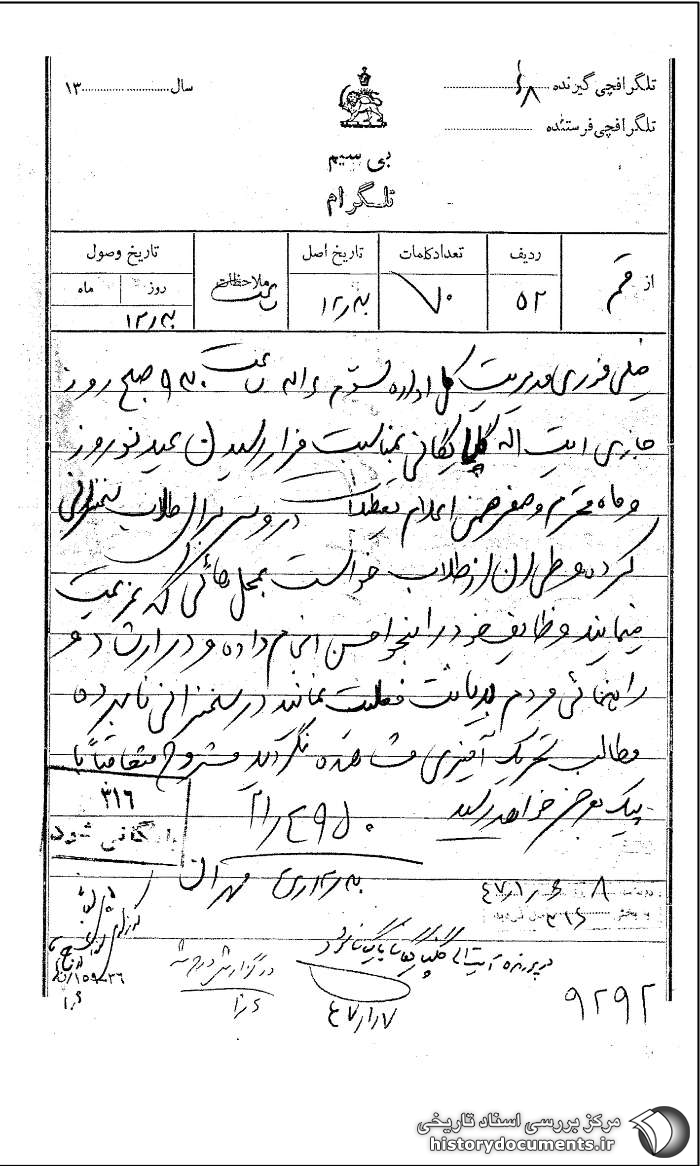 تلگرافچی گیرنده
سال ۱۳
تلگرافچی فرستنده
بی سیم
تلگرام
از قم
ردیف ۵۲
تعداد کلمات ۷۰
تاریخ اصل
ملاحظات
تاریخ وصول
روز ماه
خیلی فوری مدیریت کل اداره سوم ۹ صبح روز
جاری آیت اله گلپایگانی بمناسبت فرا رسیدن عید نوروز
و ماه محرم و صفر ضمن اعلام تعطیلات دروس برای طلاب سخنرانی
کرده و طی آن از طلاب خواست بمحل هائی که عزیمت
مینمایند وظایف خود را بنحو احسن انجام داده و در ارشاد و
راهنمائی مردم بدیانت فعلیت نمایند در سخنرانی نامبرده
مطالب تحریک آمیزی مشاهده نگردید مشروح متعاقباً با
پیک بعرض خواهد رسید
۳۱۶
بایگانی شود
مهران
۳۱۶
در پرونده آیت اله گلپایگانی بایگانی گردد
در گزارش درج شد
۴۷/۱/۷
۹۲۹۲
مرکز بررسی اسناد تاریخی
historydocuments.ir